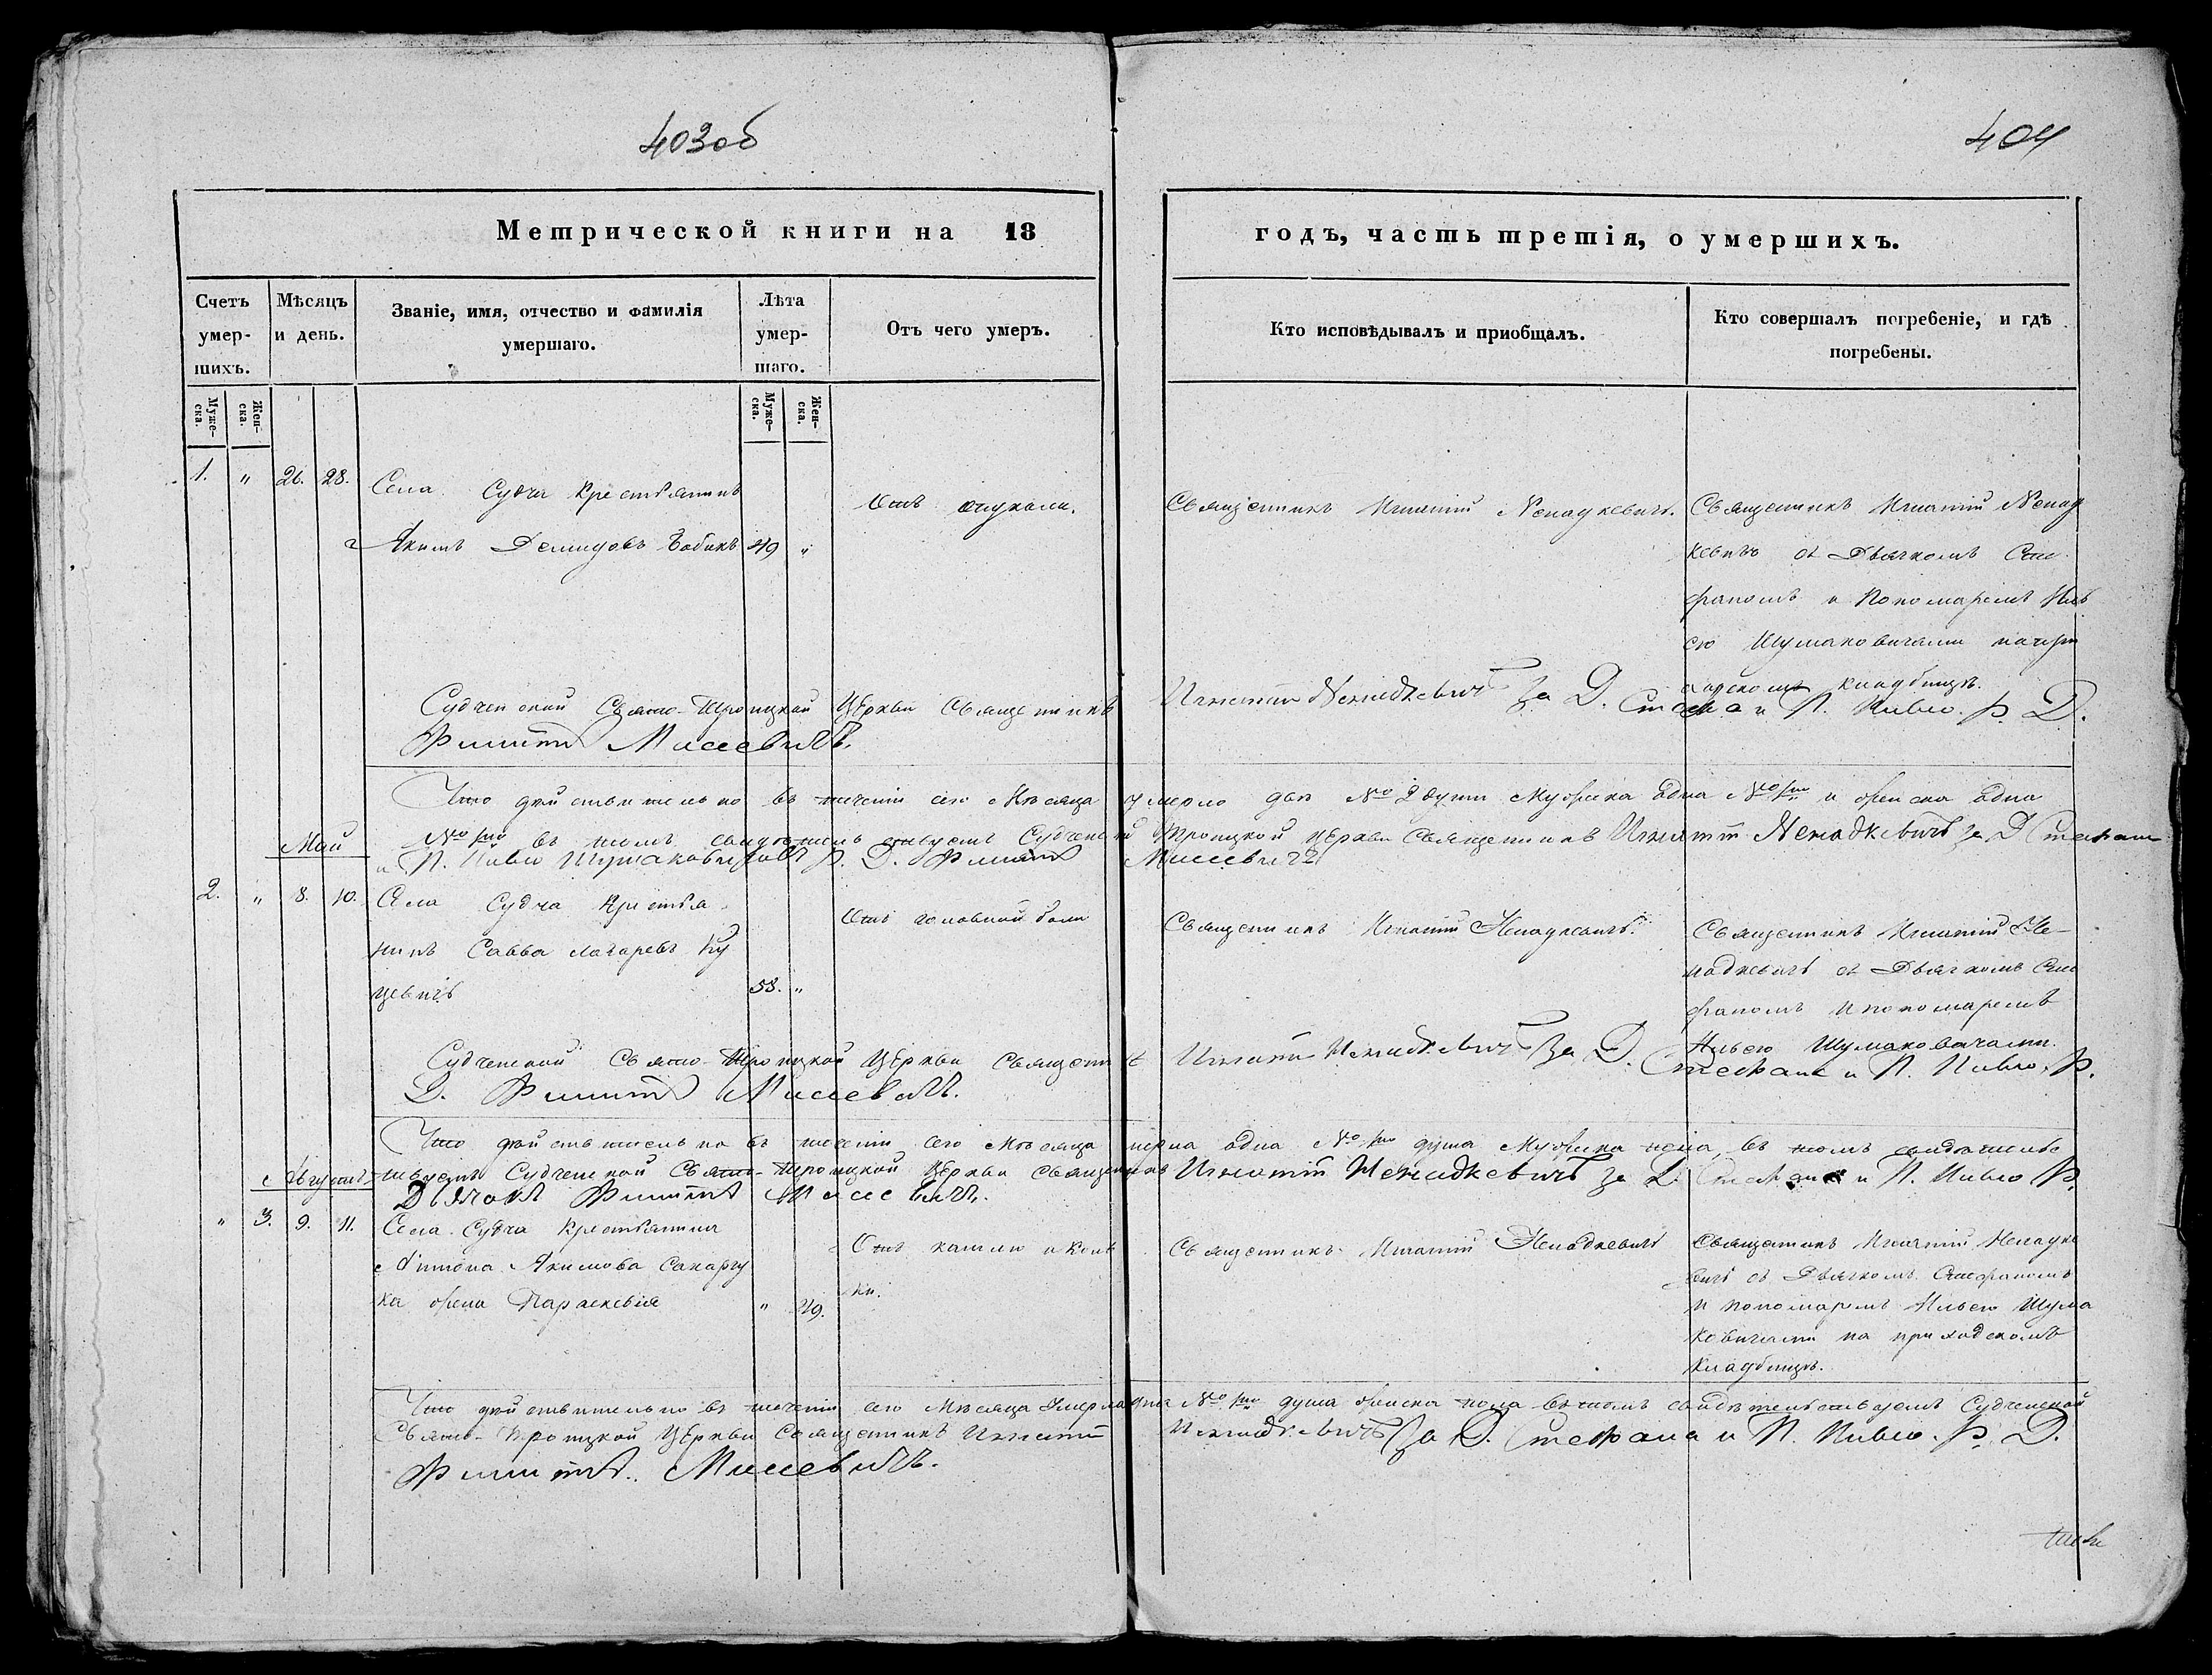 403об
404
Метрической книги на 18
годъ, часть третія, о умершихъ.
Счетъ умер-шихъ.
Мѣсяцъ и день.
Званіе, имя, отчество и фамилія умершаго.
Лѣта умер-шаго.
Отъ чего умеръ.
Кто исповѣдывалъ и приобщалъ.
Кто совершалъ погребеніе, и гдѣ погребены.
Муже-ска.
Жен-ска.
Муже-ска.
Жен-ска.
1. " 26. 28. Села Судча крестьянинъ
Якимъ Демидовъ Бобикъ 49 "
Отъ опухоли.
Священникъ Игнатій Ненадкевичъ.
Священникъ Игнатій Ненад
кевичъ съ Дьячкомъ Сте
фаномъ и Пономаремъ Иль
ею Шумаковичами на при
ходскомъ кладбищѣ.
Судченской Свято-Троицкой Церкви Священникъ Игнатій Ненадкевичъ За Д. Стефана и П. Илью. Р. Д.
Филиппъ Мисевичъ.
Что дѣйствительно въ теченіи сего Мѣсяца умерло двѣ № 2 души Мужеска одна и женска одна
въ томъ свидѣтельствуемъ Судченской Троицкой Церкви Священникъ Игнатій Ненадкевичъ За Д. Стефана
и П. Илью Шумаковичовъ Р. Д. Филиппъ Мисевичъ
Май
2. " 8. 10. Села Судча крестья
нинъ Савва Лазаревъ Ку
цевичъ 58. "
Отъ головной боли
Священникъ Игнатій Ненадкевичъ.
Священникъ Игнатій Не-
надкевичъ съ Дьячкомъ Сте
фаномъ и пономаремъ
Ильею Шумаковичами.
Судченской Свято-Троицкой Церкви Священникъ Игнатій Ненадкевичъ За Д. Стефана и П. Илью. Р.
Д. Филиппъ Мисевичъ.
Что дѣйствительно въ теченіи сего Мѣсяца умерла одна душа Мужеска пола, въ томъ свидѣтель
ствуемъ Судченской Свято-Троицкой Церкви Священникъ Игнатій Ненадкевичъ За Д. Стефана и П. Илью Р.
Дьячокъ Филиппъ Мисевичъ.
Августъ
" 3. 9. 11. Села Судча Крестьянина
Антона Якимова
ка жена Параскевія " 29.
Отъ кашлю и
ки.
Священникъ Игнатій Ненадкевичъ
Священникъ Игнатій Ненадке
вичъ съ Дьячкомъ Стефаномъ
и пономаремъ Ильею Шума
ковичами на приходскомъ
кладбищѣ.
Что дѣйствительно въ теченіи сего Мѣсяца умерла одна душа женска пола въ томъ свидѣтельствуемъ Судченской
Свято-Троицкой Церкви Священникъ Игнатій Ненадкевичъ За Д. Стефана и П. Илью. Р. Д.
Филиппъ Мисевичъ.